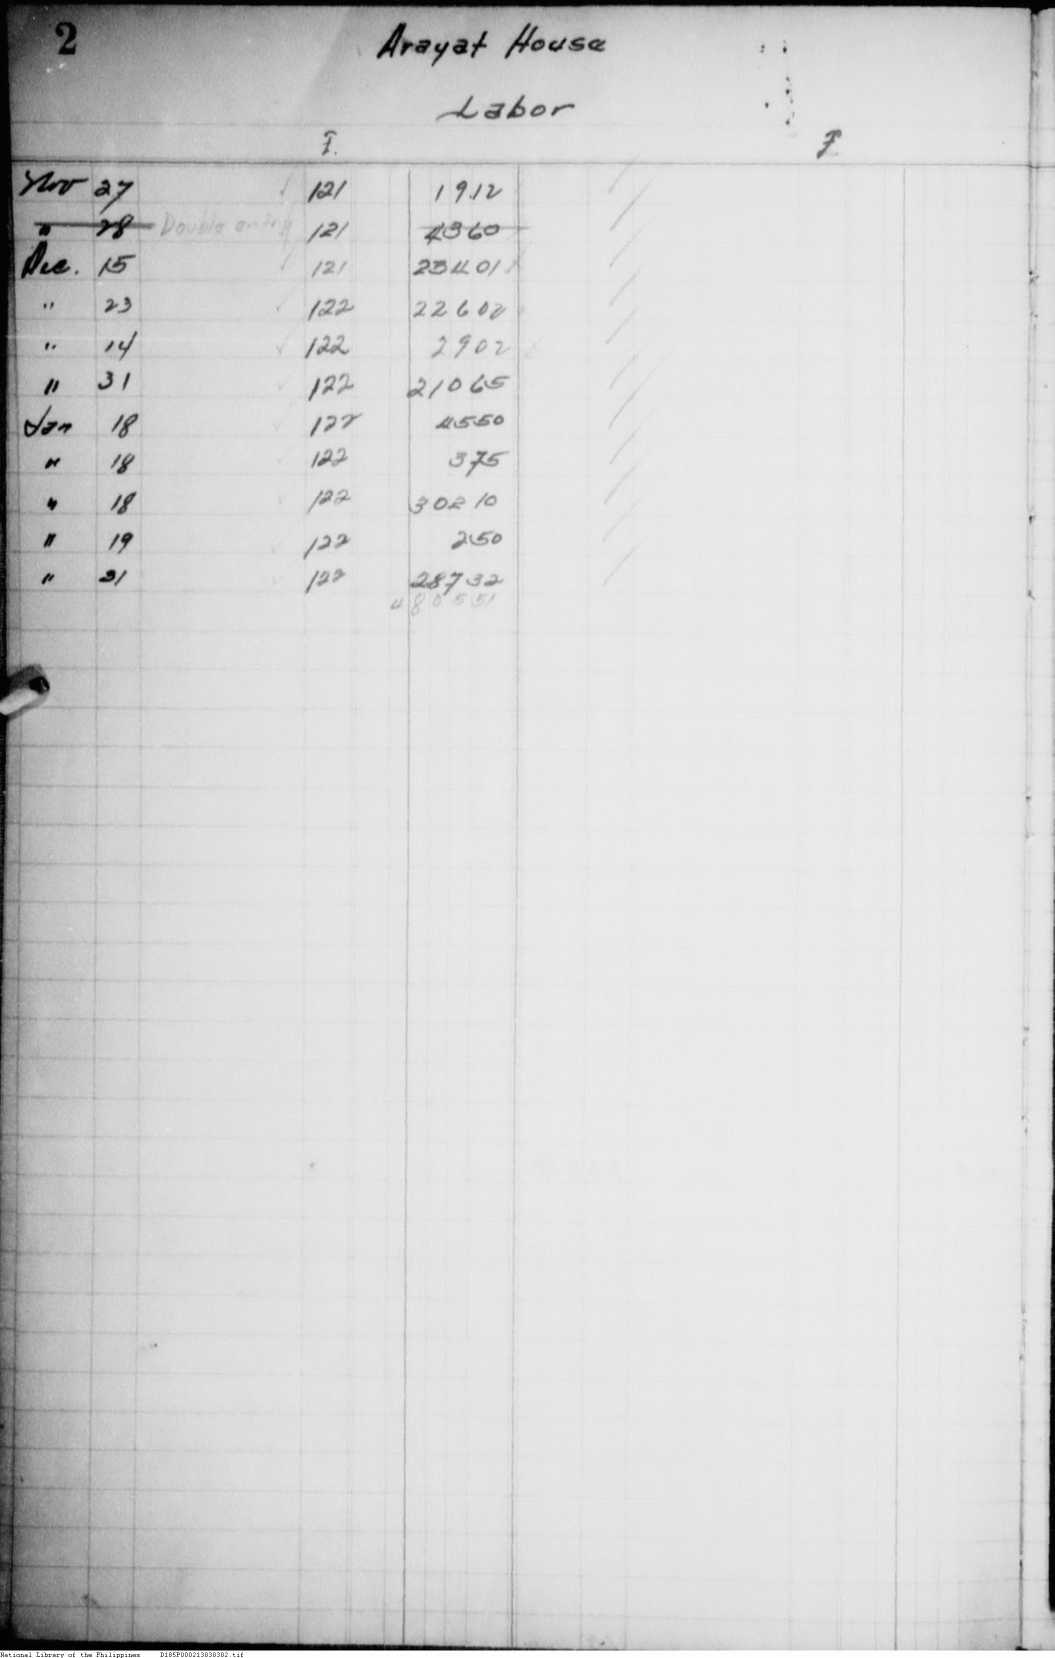 2
Arayat House
Labor
F. F
Nov 27 121 19 12
" 28 Double entry 121 43 60
Dec. 15 121 234 01
" 23 122 226 02
" 14 122 29 02
" 31 122 210 65
Jan 18 122 45 50
" 18 122 3 75
" 18 122 302 10
" 19 122 2 50
" 31 122 287 32
National Library of the Philippines D185P000213038302.tif